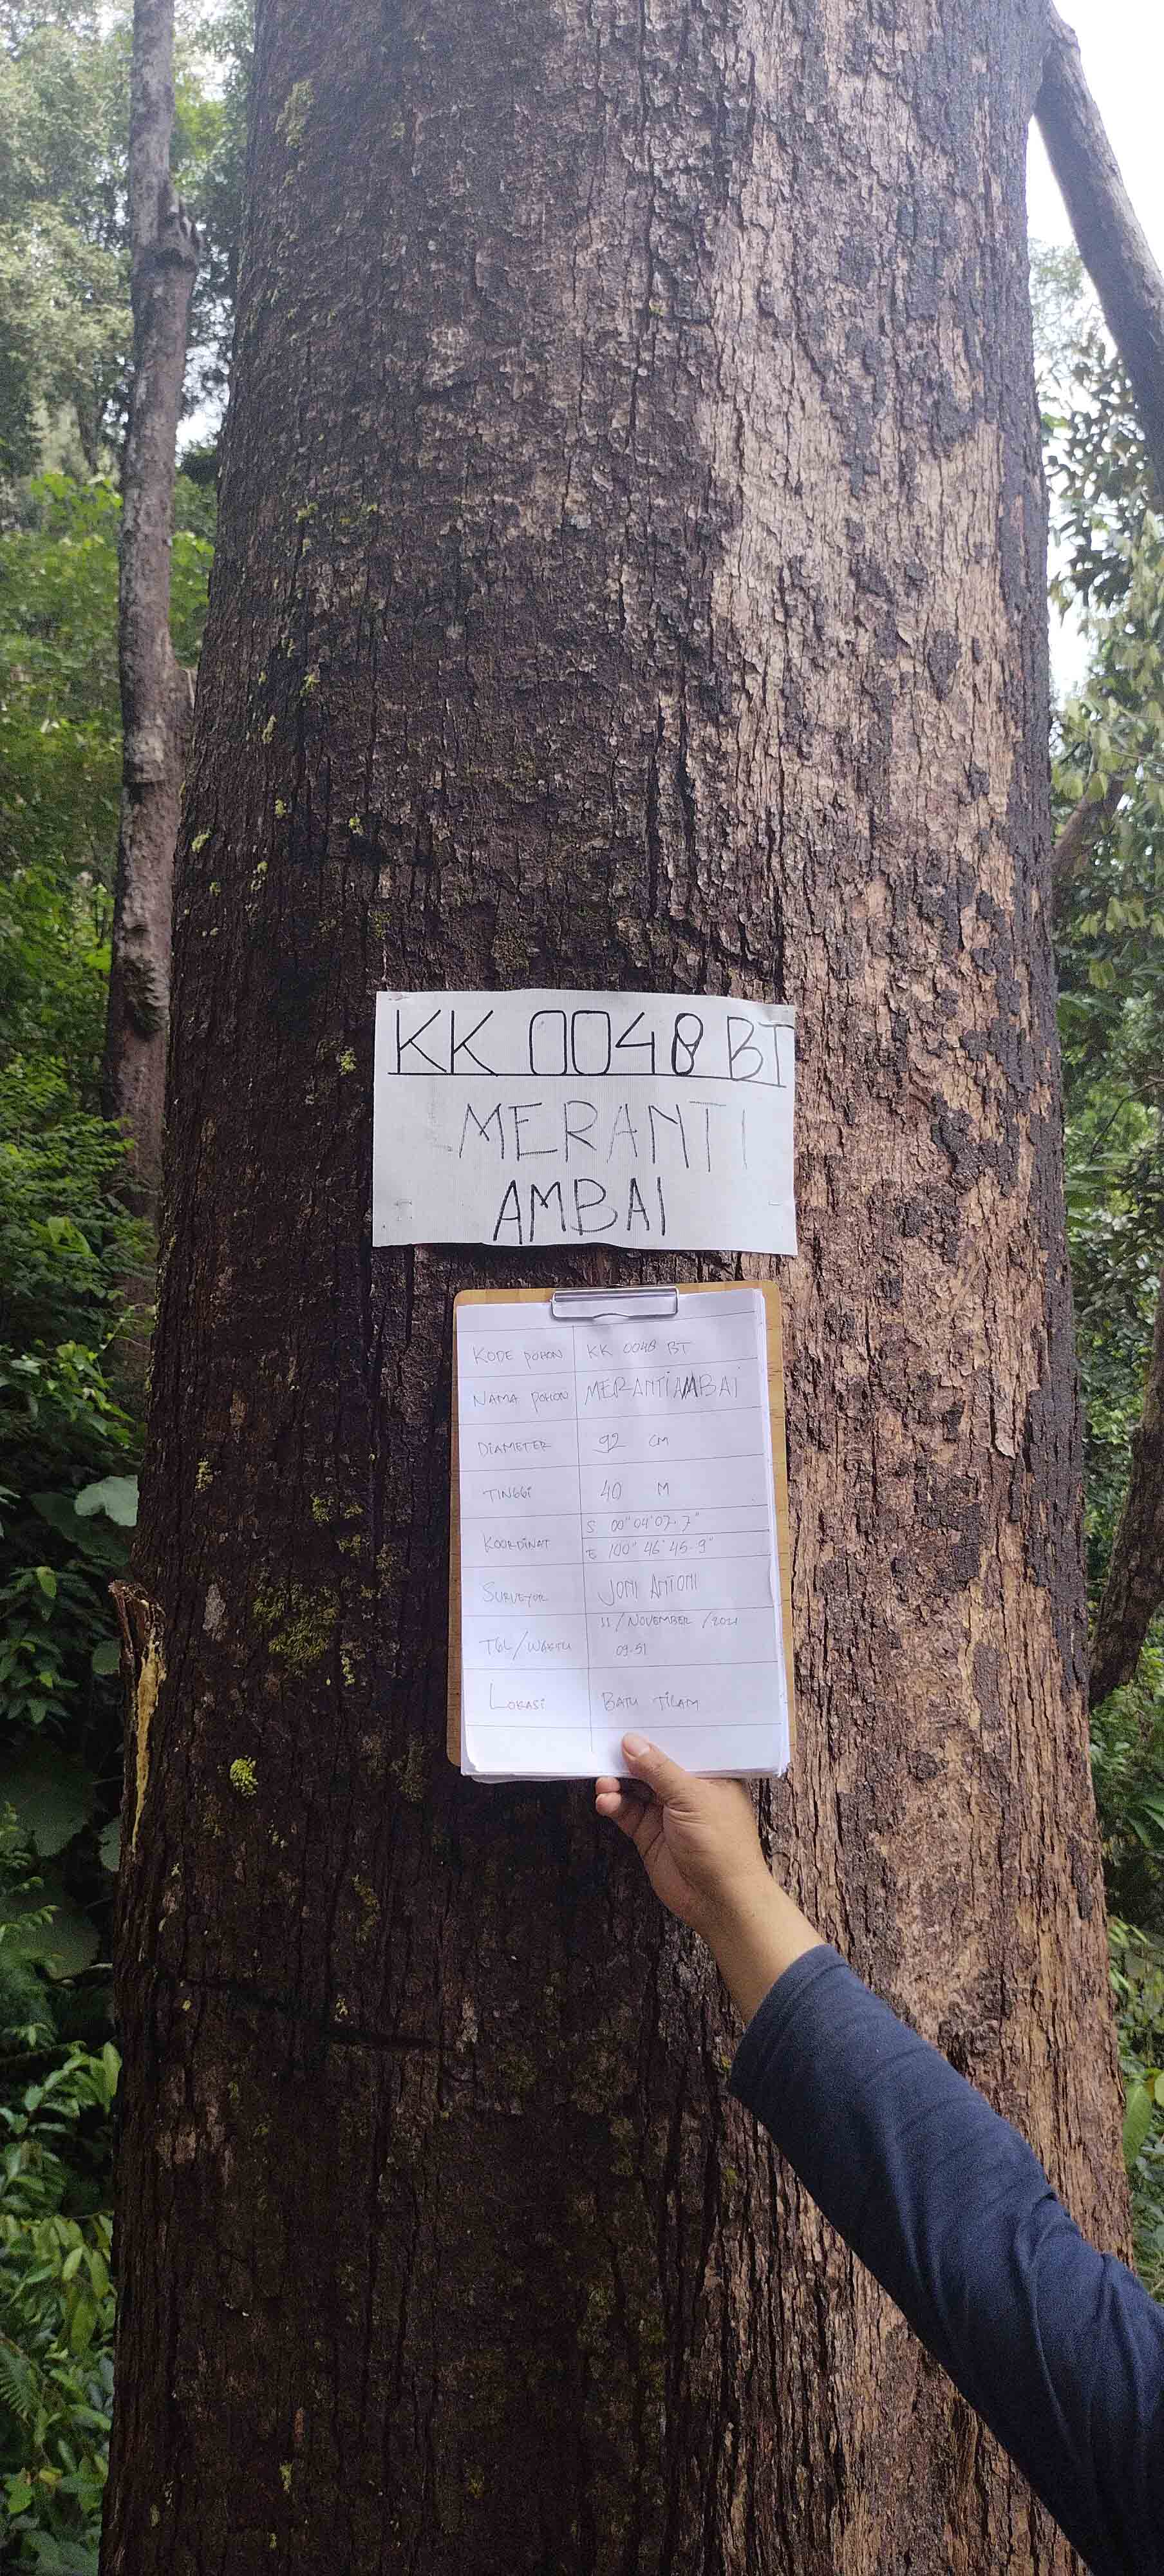 KK 0048 BT
MERANTI
AMBAI
KODE POHON KK 0048 BT
NAMA POHON MERANTI AMBAI
DIAMETER 92 CM
TINGGI 40 M
KOORDINAT S 00° 04' 07.7"
E 100° 46' 45.9"
SURVEYOR JONI ANTONI
TGL/WAKTU 11/NOVEMBER/2021
09.51
LOKASI BATU TILAM